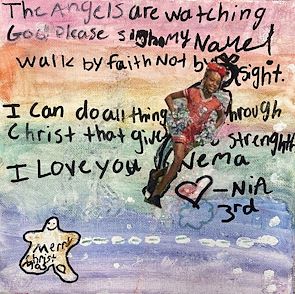 The Angels are watching
God Please sign my Name!
walk by faith Not by sight.
I can do all thing through
Christ that give strenght
I Love you Nema
-NiA
3rd
Merry
christ
mas